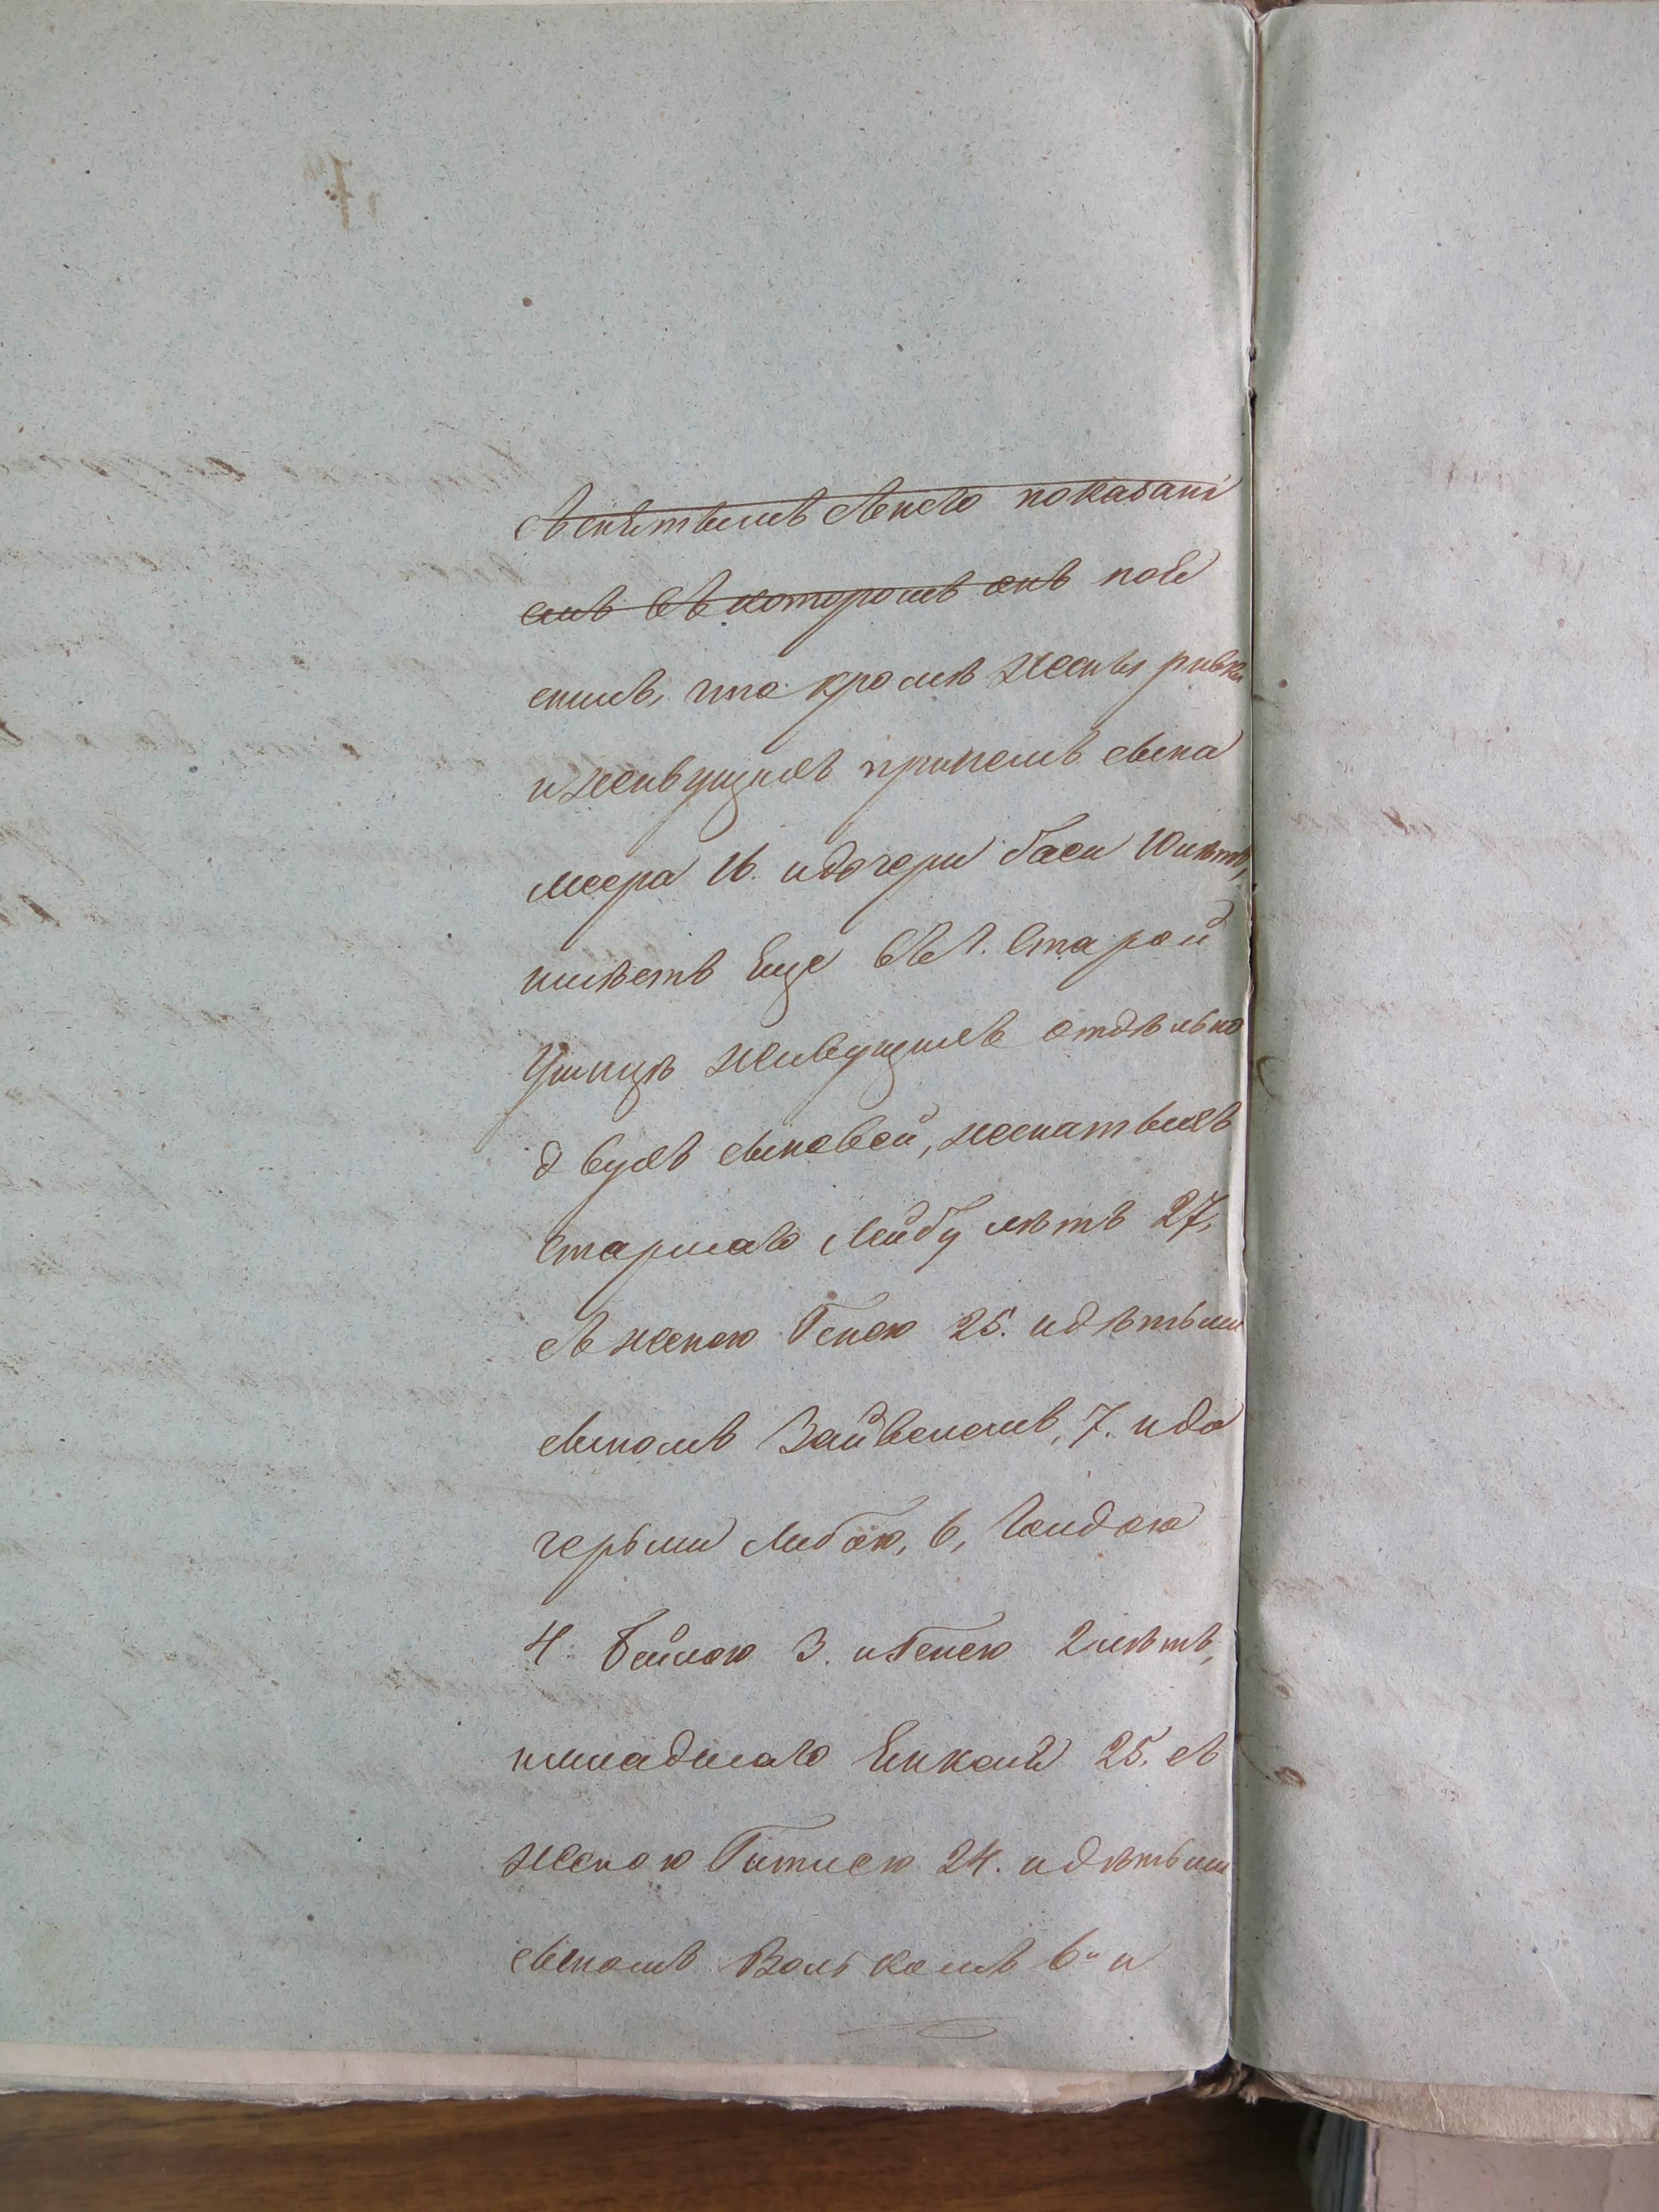 съ снятымъ съ него показані
емъ въ которомъ онъ пояс
нилъ, что кромѣ жены ривки
и живущихъ при немъ сына
меера 16. и дочери баси 10 лѣтъ,
имѣетъ еще въ г. Старой
Ушицѣ живущихъ отдѣльно
двухъ сыновей, женатыхъ
старшаго Лейбу лѣтъ 27,
съ женою Генею 25. и дѣтьми
сыномъ Зайвеломъ, 7. и до
черьми Либою, 6, Гольдою
4. Бейлою 3. и Генею 2 лѣтъ,
и младшаго Янкеля 25. съ
женою Гитлею 24. и дѣтьми
сыномъ Волькомъ 6и и